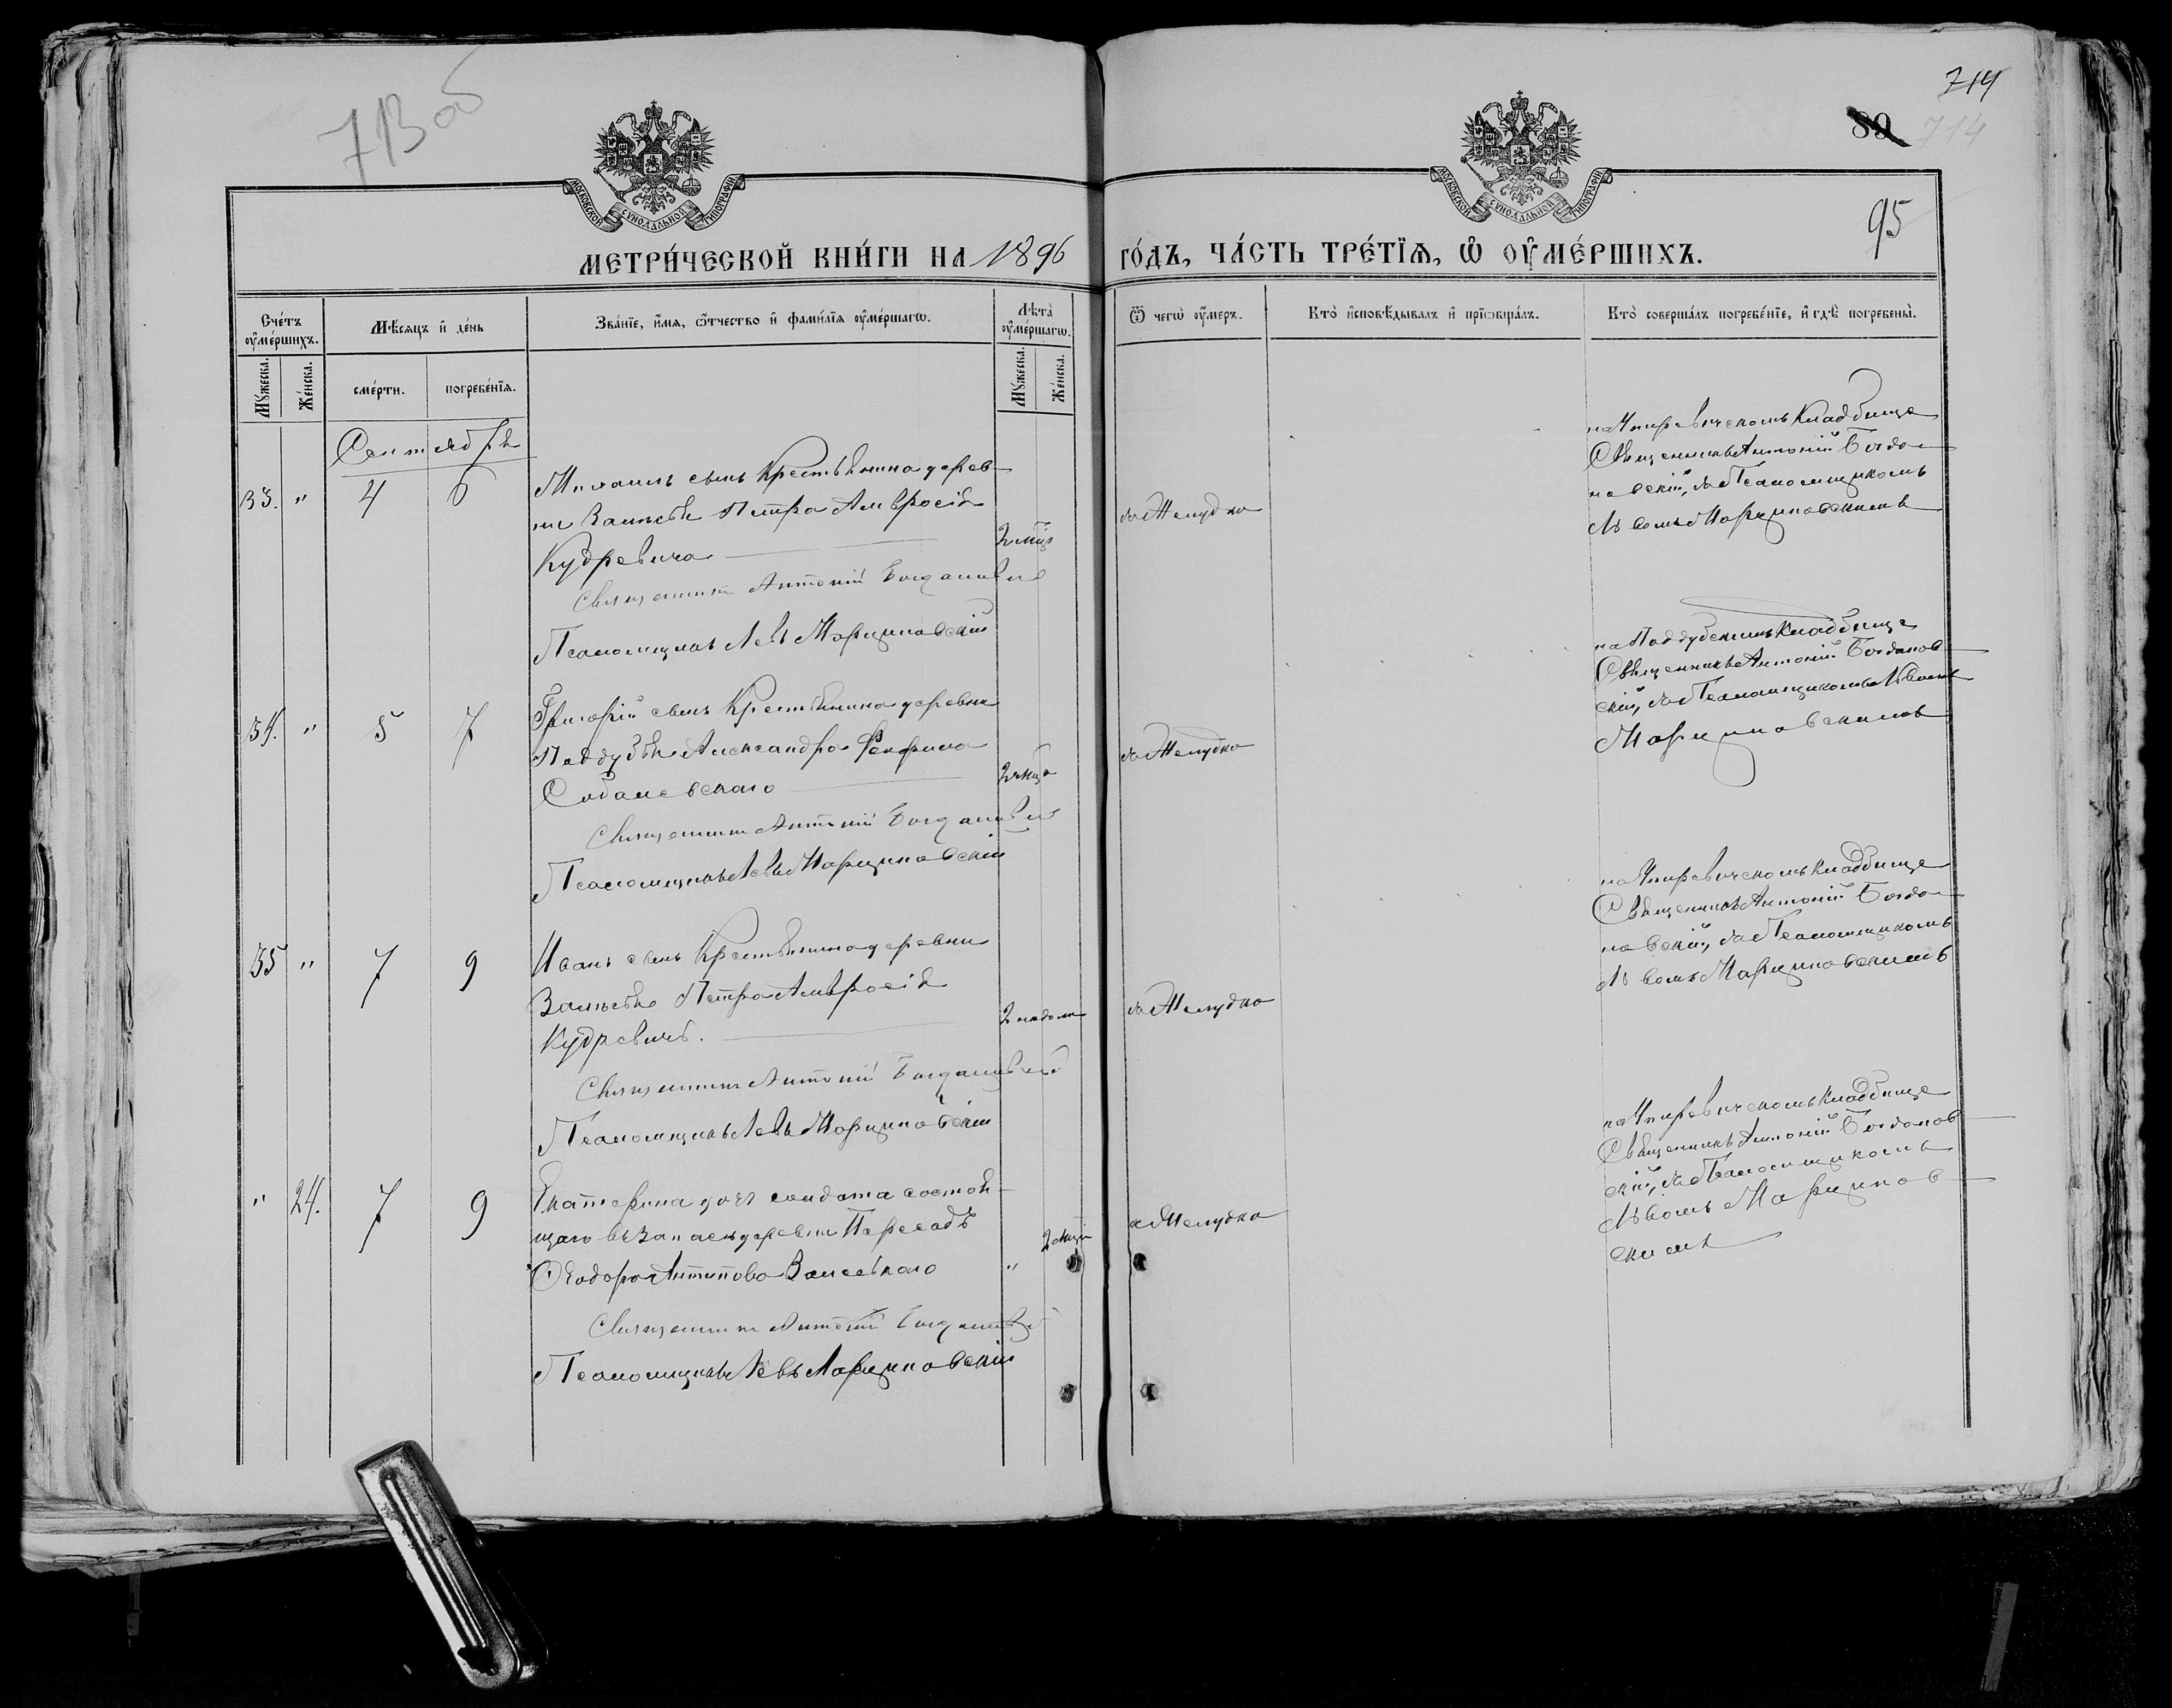 713 об
714
89
714
95
МОСКОВСКОЙ СѴНОДАЛЬНОЙ ТИПОГРАФІИ
МОСКОВСКОЙ СѴНОДАЛЬНОЙ ТИПОГРАФІИ
МЕТРИ́ЧЕСКОЙ КНИ́ГИ НА 1896 ГО́ДЪ, ЧА́СТЬ ТРЕ́ТЇѦ, Ѡ҆ ОУ҆МЕ́РШИХЪ.
Сче́тъ оу҆ме́ршихъ.
Мꙋ́жеска.
Же́нска.
Мѣ́сяцъ и҆ де́нь
сме́рти.
погребе́нїѧ.
Зва́нїе, и҆́мѧ, ѻ҆́тчество и҆ фами́лїѧ оу҆ме́ршагѡ.
Лѣ́та оу҆ме́ршагѡ.
Мꙋ́жеска.
Же́нска.
Ѿ чегѡ̀ оу҆́меръ.
Кто̀ и҆сповѣ́дывалъ и҆ прїѡбща́лъ.
Кто̀ соверша́лъ погребе́нїе, и҆ гдѣ̀ погребены̀.
Сентябрь
33. " 4 6
Михаилъ сынъ Крестьянина дерев-
ни Замосья Петра Амвросія
Кудревича
2 мѣц
Священникъ Антоній Богдановскій
Псаломщикъ Левъ Марциновскій
отъ Желудка
на кладбище
Священникъ Антоній Богда-
новскій, съ Псаломщикомъ
Львомъ Марциновскимъ
34. " 5 7
Григорій сынъ Крестьянина деревни
Поддубья Александра
Соболевскаго
2 мѣца
Священникъ Антоній Богдановскій
Псаломщикъ Левъ Марциновскій
отъ Желудка
на Поддубскимъ Кладбище
Священникъ Антоній Богданов-
скій, съ Псаломщикомъ Львомъ
Марциновскимъ
35 " 7 9
Иванъ сынъ Крестьянина деревни
Замосья Петра Амвросія
Кудревичъ.
2 недели
Священникъ Антоній Богдановскій
Псаломщикъ Левъ Марциновскій
отъ Желудка
на кладбище
Священникъ Антоній Богда-
новскій, съ Псаломщикомъ
Львомъ Марциновскимъ
" 24. 7 9
Екатерина дочь солдата состоя-
щаго въ запасѣ деревни Пересадъ
Ѳеодора Антипова
2 мѣц
"
Священникъ Антоній Богдановскій
Псаломщикъ Левъ Марциновскій
отъ Желудка
на кладбище
Священникъ Антоній Богданов-
скій, съ Псаломщикомъ
Львомъ Марцинов-
скимъ